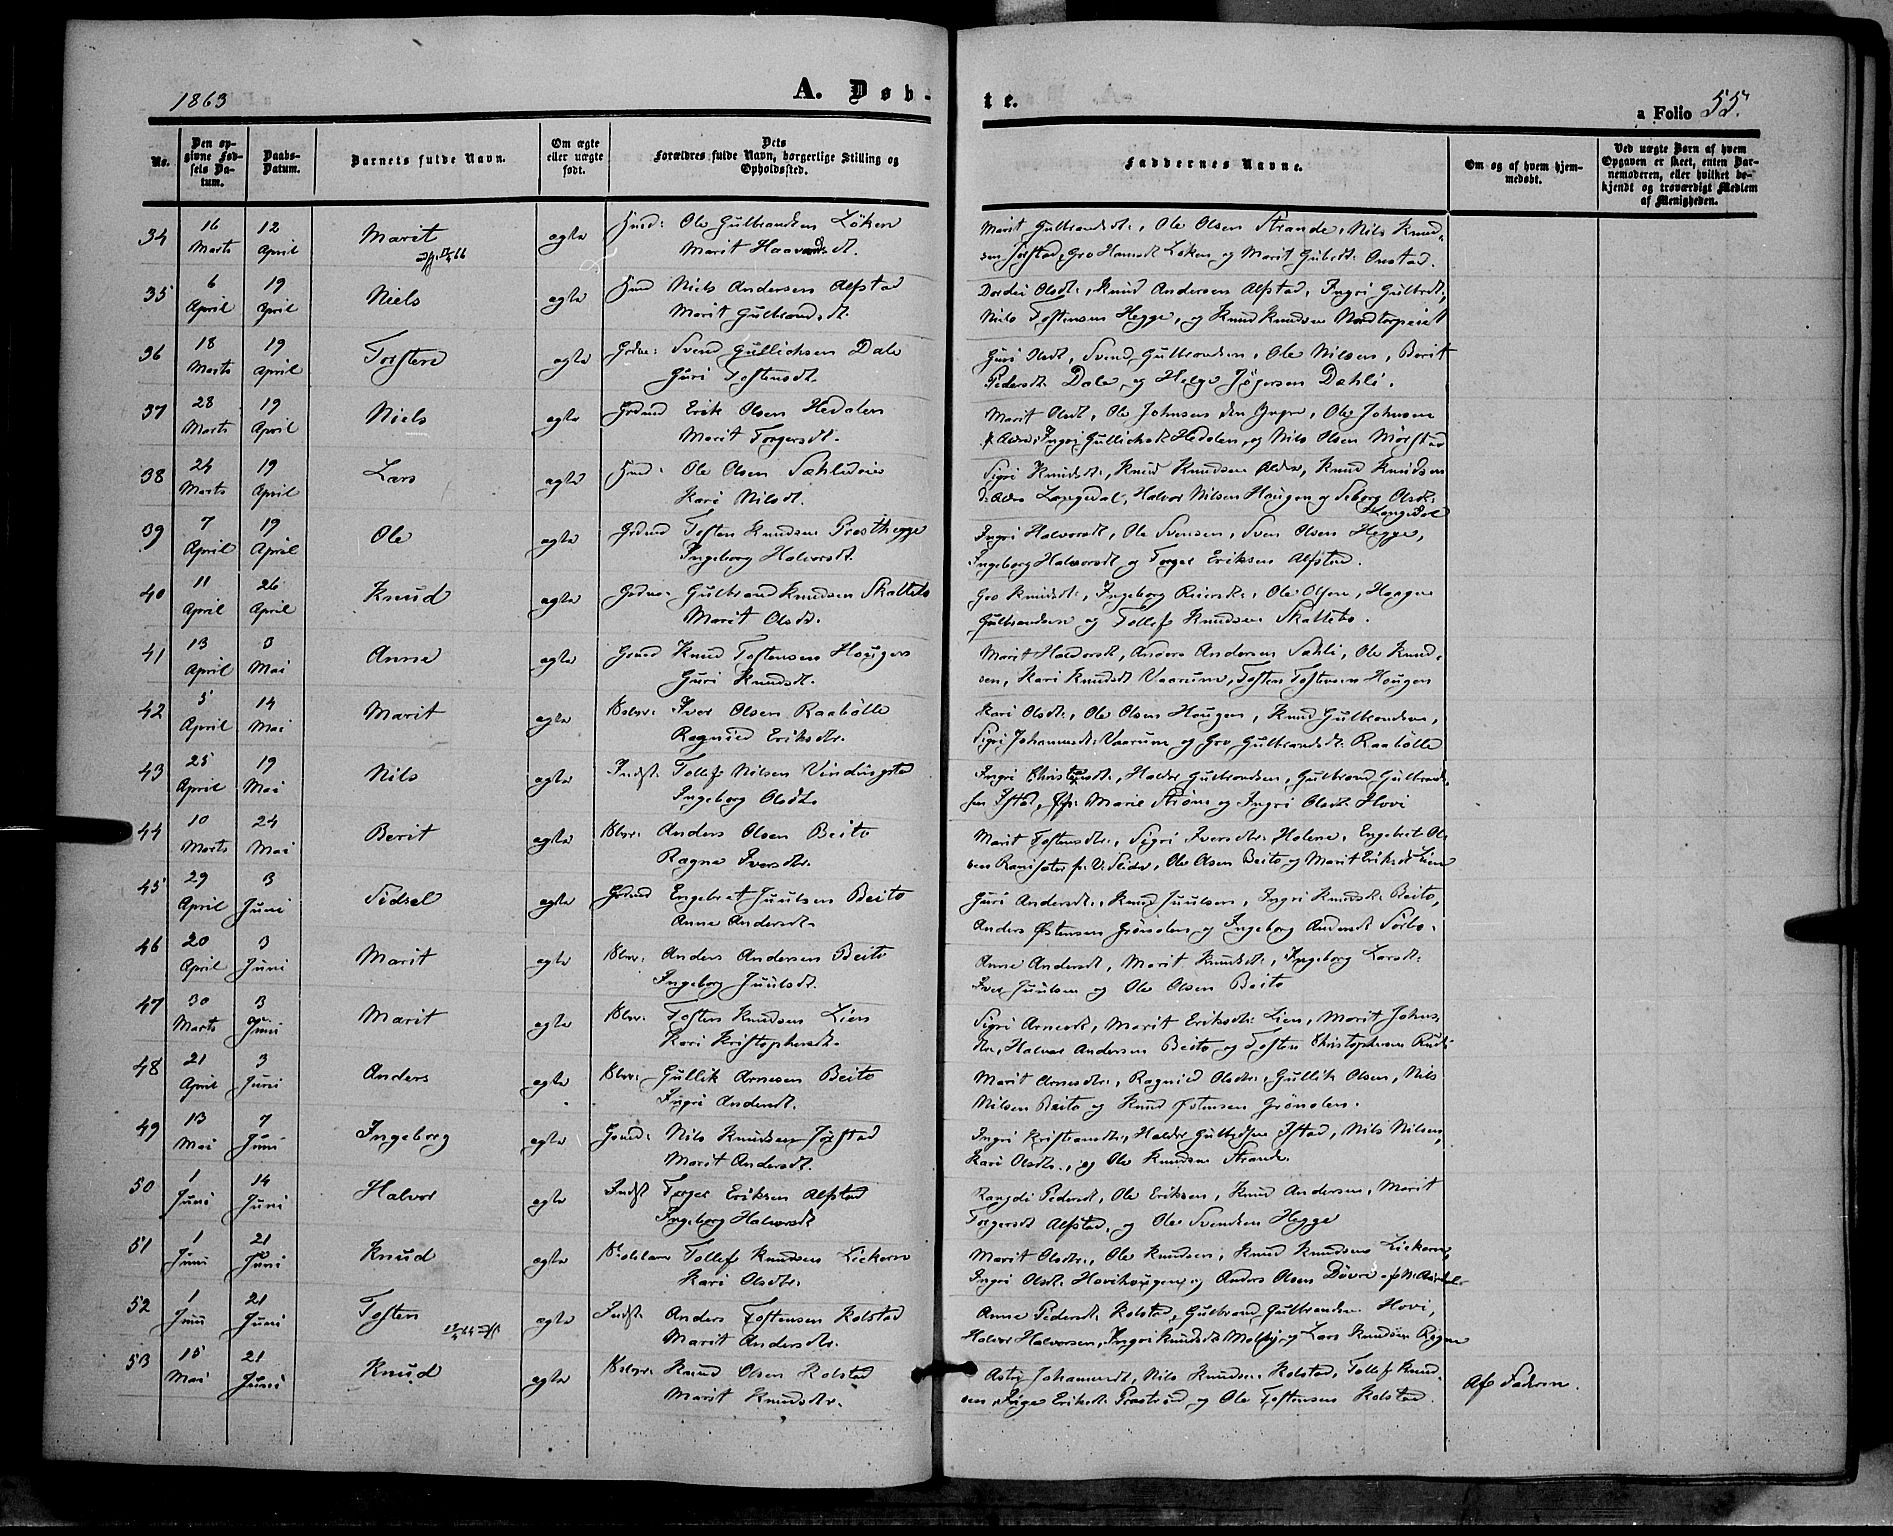 1863
A. Døb-
te.
a Folio 55.
No.
Den op-
givne Fød-
sels Da-
tum.
Daabs-
Datum.
Barnets fulde Navn.
Om ægte
eller uægte
født.
Dets
Forældres fulde Navn, borgerlige Stilling og
Opholdssted.
Faddernes Navne.
Om og af hvem hjem-
medøbt.
Ved uægte Børn af hvem
Opgaven er skeet, enten Bar-
nemoderen, eller hvilket be-
kjendt og troværdigt Medlem
af Menigheden.
34 16 Marts 12 April Marit ægte Ole Gulbrandsen Løken
Marit Haavardsdt.
Marit Gulbrandsdt:, Ole Olsen Strande, Nils Knud-
sen Jøistad, Gro Hansdt Løken og Marit Gulbrdt: Onstad.
35 6 April 19 April Niels ægte Niels Andersen Alfstad
Marit Gulbrandsdt.
Dordei Olsdt:, Knud Andersen Alfstad, Ingri Gulbrdt,
Nils Tostensen Hegge, og Knud Knudsen
36 18 Marts 19 April Torsten ægte Svend Gullichsen Dale
Guri Tostensdt.
Guri Olsdt, Svend Gulbrandsen, Ole Nilsen, Berit
Pedersdt: Dale og Helge Dahli.
37 28 Marts 19 April Niels ægte Erik Olsen Hedalen
Marit Torgersdt.
Marit Olsdt, Ole Johnsen den Yngre, Ole Johnsen
Hedalen, og Nils Olsen Mørstad
38 24 Marts 19 April Lars ægte Ole Olsen
Kari Nilsdt.
Sigri Knudsdt:, Knud Knudsen Knud Knudsen
Langedal, Halvor Nilsen Hougen og Seborg Olsdt:
Langedal
39 7 April 19 April Ole ægte Tosten Knudsen Prosthegge
Ingeborg Halvorsdt.
Ingri Halvorsdt, Ole Svensen, Sven Olsen Hegge,
Ingeborg Halvorsdt og Torger Eriksen Alfstad.
40 11 April 26 April Knud ægte Gulbrand Knudsen Skattebo
Marit Olsdt.
Gro Knudsdt:, Ingeborg Ole Olsen, Haagen
Gulbrandsen og Tollef Knudsen Skattebo.
41 13 April 3 Mai Anne ægte Knud Tostensen Hougen
Guri Knudsdt.
Marit Haldorsdt, Anders Andersen Sahli, Ole Knud-
sen, Kari Knudsdt Vaarum, Tosten Tostensen Hougen
42 5 April 14 Mai Marit ægte Iver Olsen Raabølle
Ragnied Eriksdtr.
Kari Olsdt:, Ole Olsen Hougen, Knud Gulbrandsen,
Sigri Johannesdt: Vaarum og Gro Gulbrandsdt: Raabølle
43 25 April 19 Mai Nils ægte Indst. Tollef Nilsen Vindingstad
Ingeborg Olsdt.
Ingri Haldor Gulbrandsen, Gulbrand Gulbrand-
sen Istad, Marie Strøm og Ingri Olsdt Hovi
44 10 Marts 24 Mai Berit ægte Anders Olsen Beito
Ragne Iversdtr.
Marit Tostensdtr:, Sigri Iversdtr: Holene, Engebret Ol-
sen Ole Olsen Beito og Marit Eriksdt Lien
45 29 April 3 Juni Sidsel ægte Engebret Juulsen Beito
Anne Andersdt.
Guri Andersdt:, Knud Juulsen, Ingri Knudsdt: Beito,
Anders Østensen Grønolen og Ingeborg Andersdt Sørbo.
46 20 April 3 Juni Marit ægte Anders Andersen Beito
Ingeborg Juulsdt.
Anne Andersdt, Marit Knudsdt:, Ingeborg Larsdt:
Iver Juulsen og Ole Olsen Beito
47 30 Marts 3 Juni Marit ægte Tosten Knudsen Lien
Kari Kristophersdt.
Sigri Arnesdt, Marit Eriksdt: Lien, Marit Johns-
dtr, Halvor Andersen Beito og Tosten Christophersen Rudi
48 21 April 3 Juni Anders ægte Gullik Arnesen Beito
Ingri Andersdt.
Marit Arnesdtr:, Ragnied Olsdtr:, Gullik Olsen, Nils
Nilsen Beito og Knud Østensen Grønolen.
49 13 Mai 7 Juni Ingeborg ægte Nils Knudsen Jøistad
Marit Andersdt.
Ingri Kristiansdt:, Haldor Gulbrdsen Istad, Nils Nilsen,
Kari Olsdtr:, og Ole Knudsen Strande.
50 1 Juni 14 Juni Halvor ægte Indst Torger Eriksen Alfstad
Ingeborg Halvorsdt
Rangdi Pedersdt, Ole Eriksen, Knud Andersen, Marit
Torgersdt Alfstad, og Ole Svendsen Hegge
51 1 Juni 21 Juni Knud ægte Tollef Knudsen Liekern
Kari Olsdtr.
Marit Olsdtr:, Ole Knudsen, Knud Knudsen Liekern,
Ingri Olsdt: Hovihougen og Anders Olsen Døvre
52 1 Juni 21 Juni Tosten ægte Indst. Anders Tostensen Kolstad
Marit Andersdtr.
Anne Pedersdt: Kolstad, Gulbrand Gulbrandsen Hovi,
Halvor Halvorsen, Ingri Knudsdt og Lars Knudsen Rogne
53 15 Mai 21 Juni Knud ægte Knud Olsen Kolstad
Marit Knudsdtr.
Astri Johannesdt, Nils Knudsen Kolstad, Tollef Knud-
sen, Inga Eriksdt: og Ole Tostensen Kolstad.
Af Faderen.